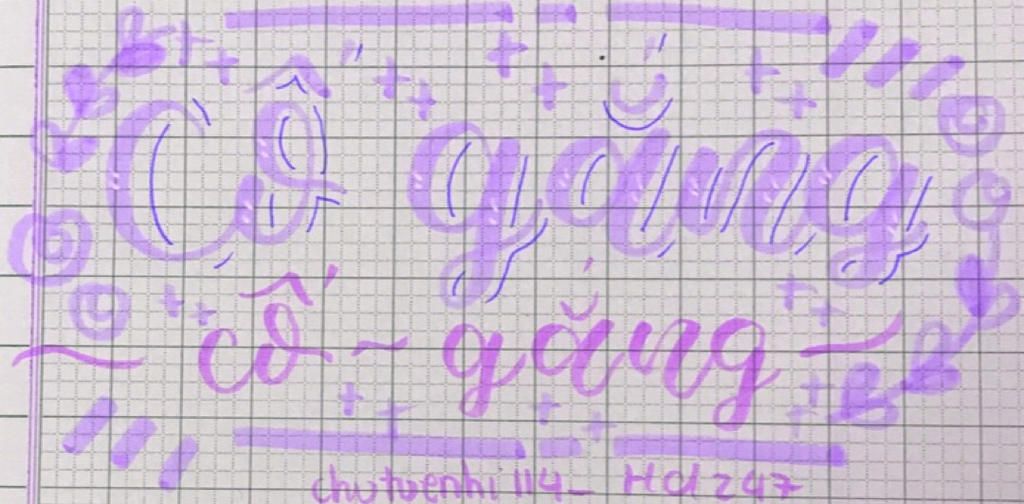 Cố gắng
cố ~ gắng
chutuenhi 114_ Hd247